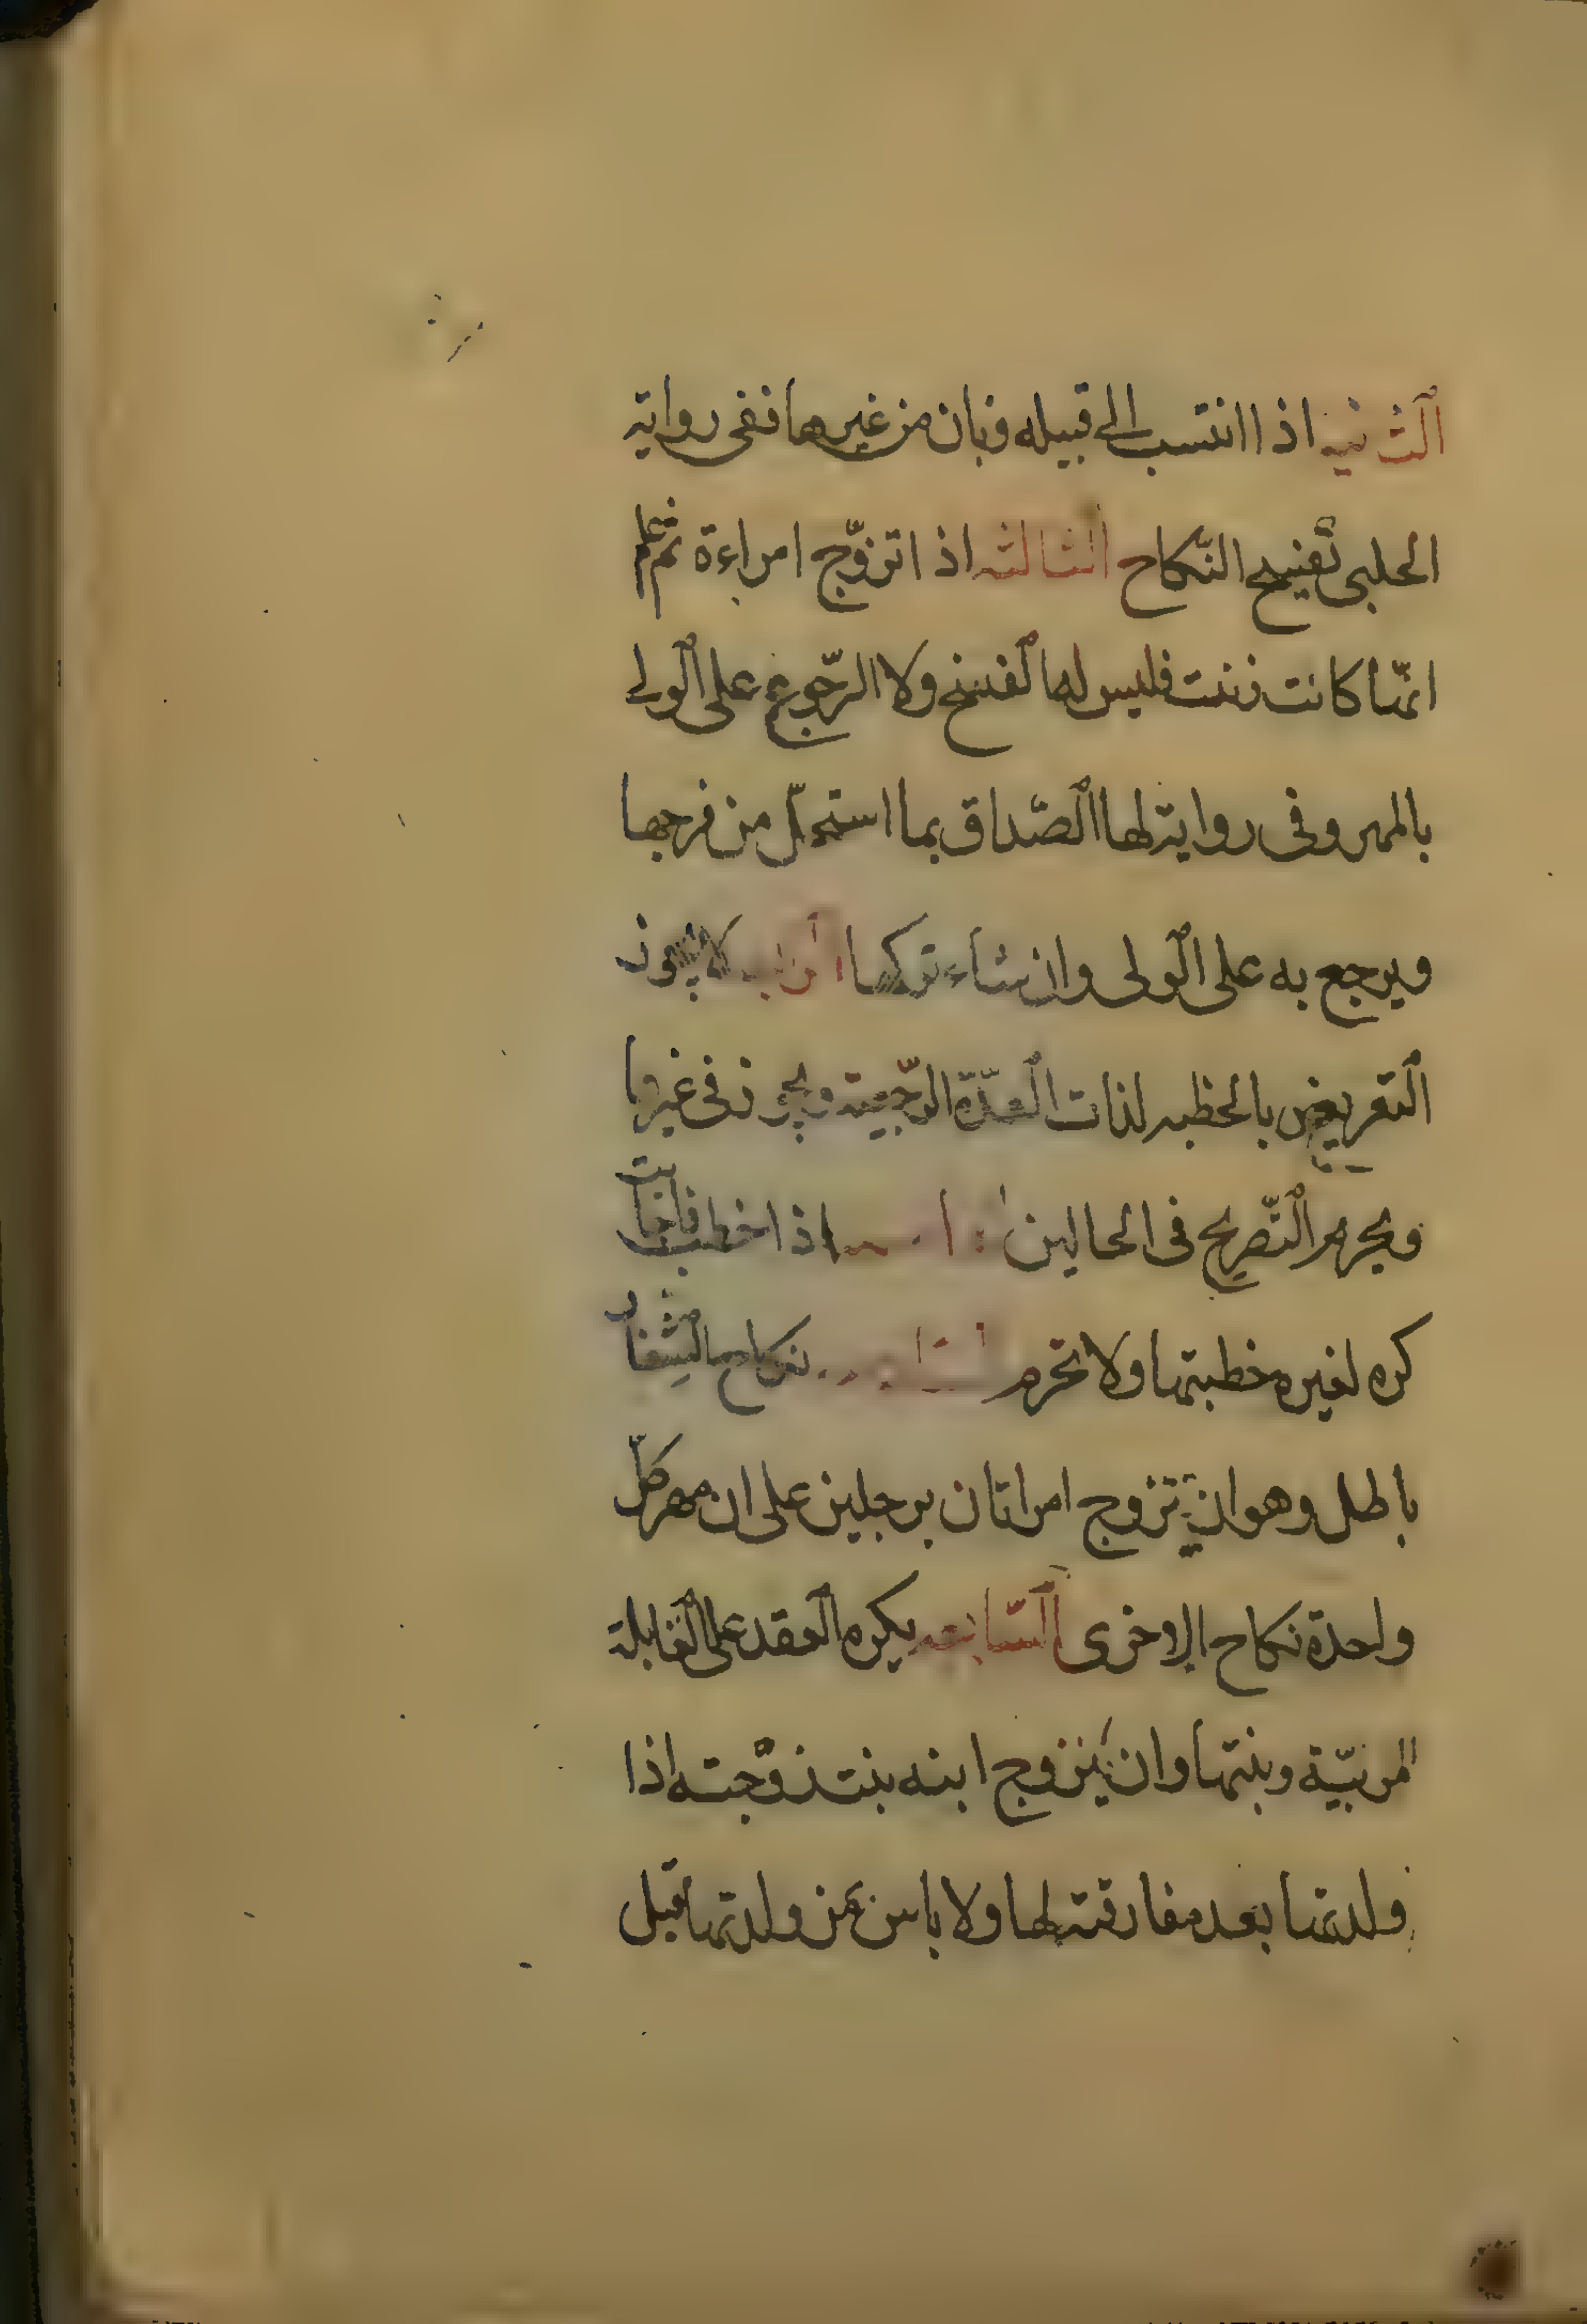 الثانيه اذا انتسب الى قبيله فبان من غيرها ففى رواية
الحلبى تفسخ النّكاح الثالثه اذا تزوّج امراءة ثم علم
انّها كانت زنت فليس له الفسخ ولا الرّجوع على الولى
بالمهر وفى رواية لها الصّداق بما استحلّ من فرجها
ويرجع به على الولى وان شاء تركها الرابعه لا يجوز
التعريض بالخطبه لذات العدّة الرّجعيّة ويجوز فى غيرها
ويحرم التّصريح فى الحالين الخامسه اذا خطب فاجابت
كره لغيره خطبتها ولا تحرم السّادسه نكاح الشغار
باطل وهو ان يتزوج امراتان برجلين على ان مهر كلّ
واحدة نكاح الاخرى السّابعه يكره العقد على القابلة
المربيّة وبنتها وان يزوج ابنه بنت زوجته اذا
ولدتها بعد مفارقته لها ولا باس بمن ولدتها قبل